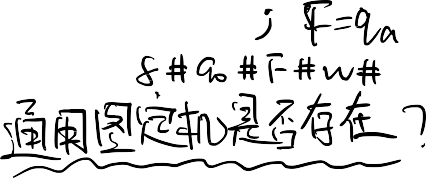 ; F=qₐ
δ#q₀#F#w#
通用图灵机是否存在？